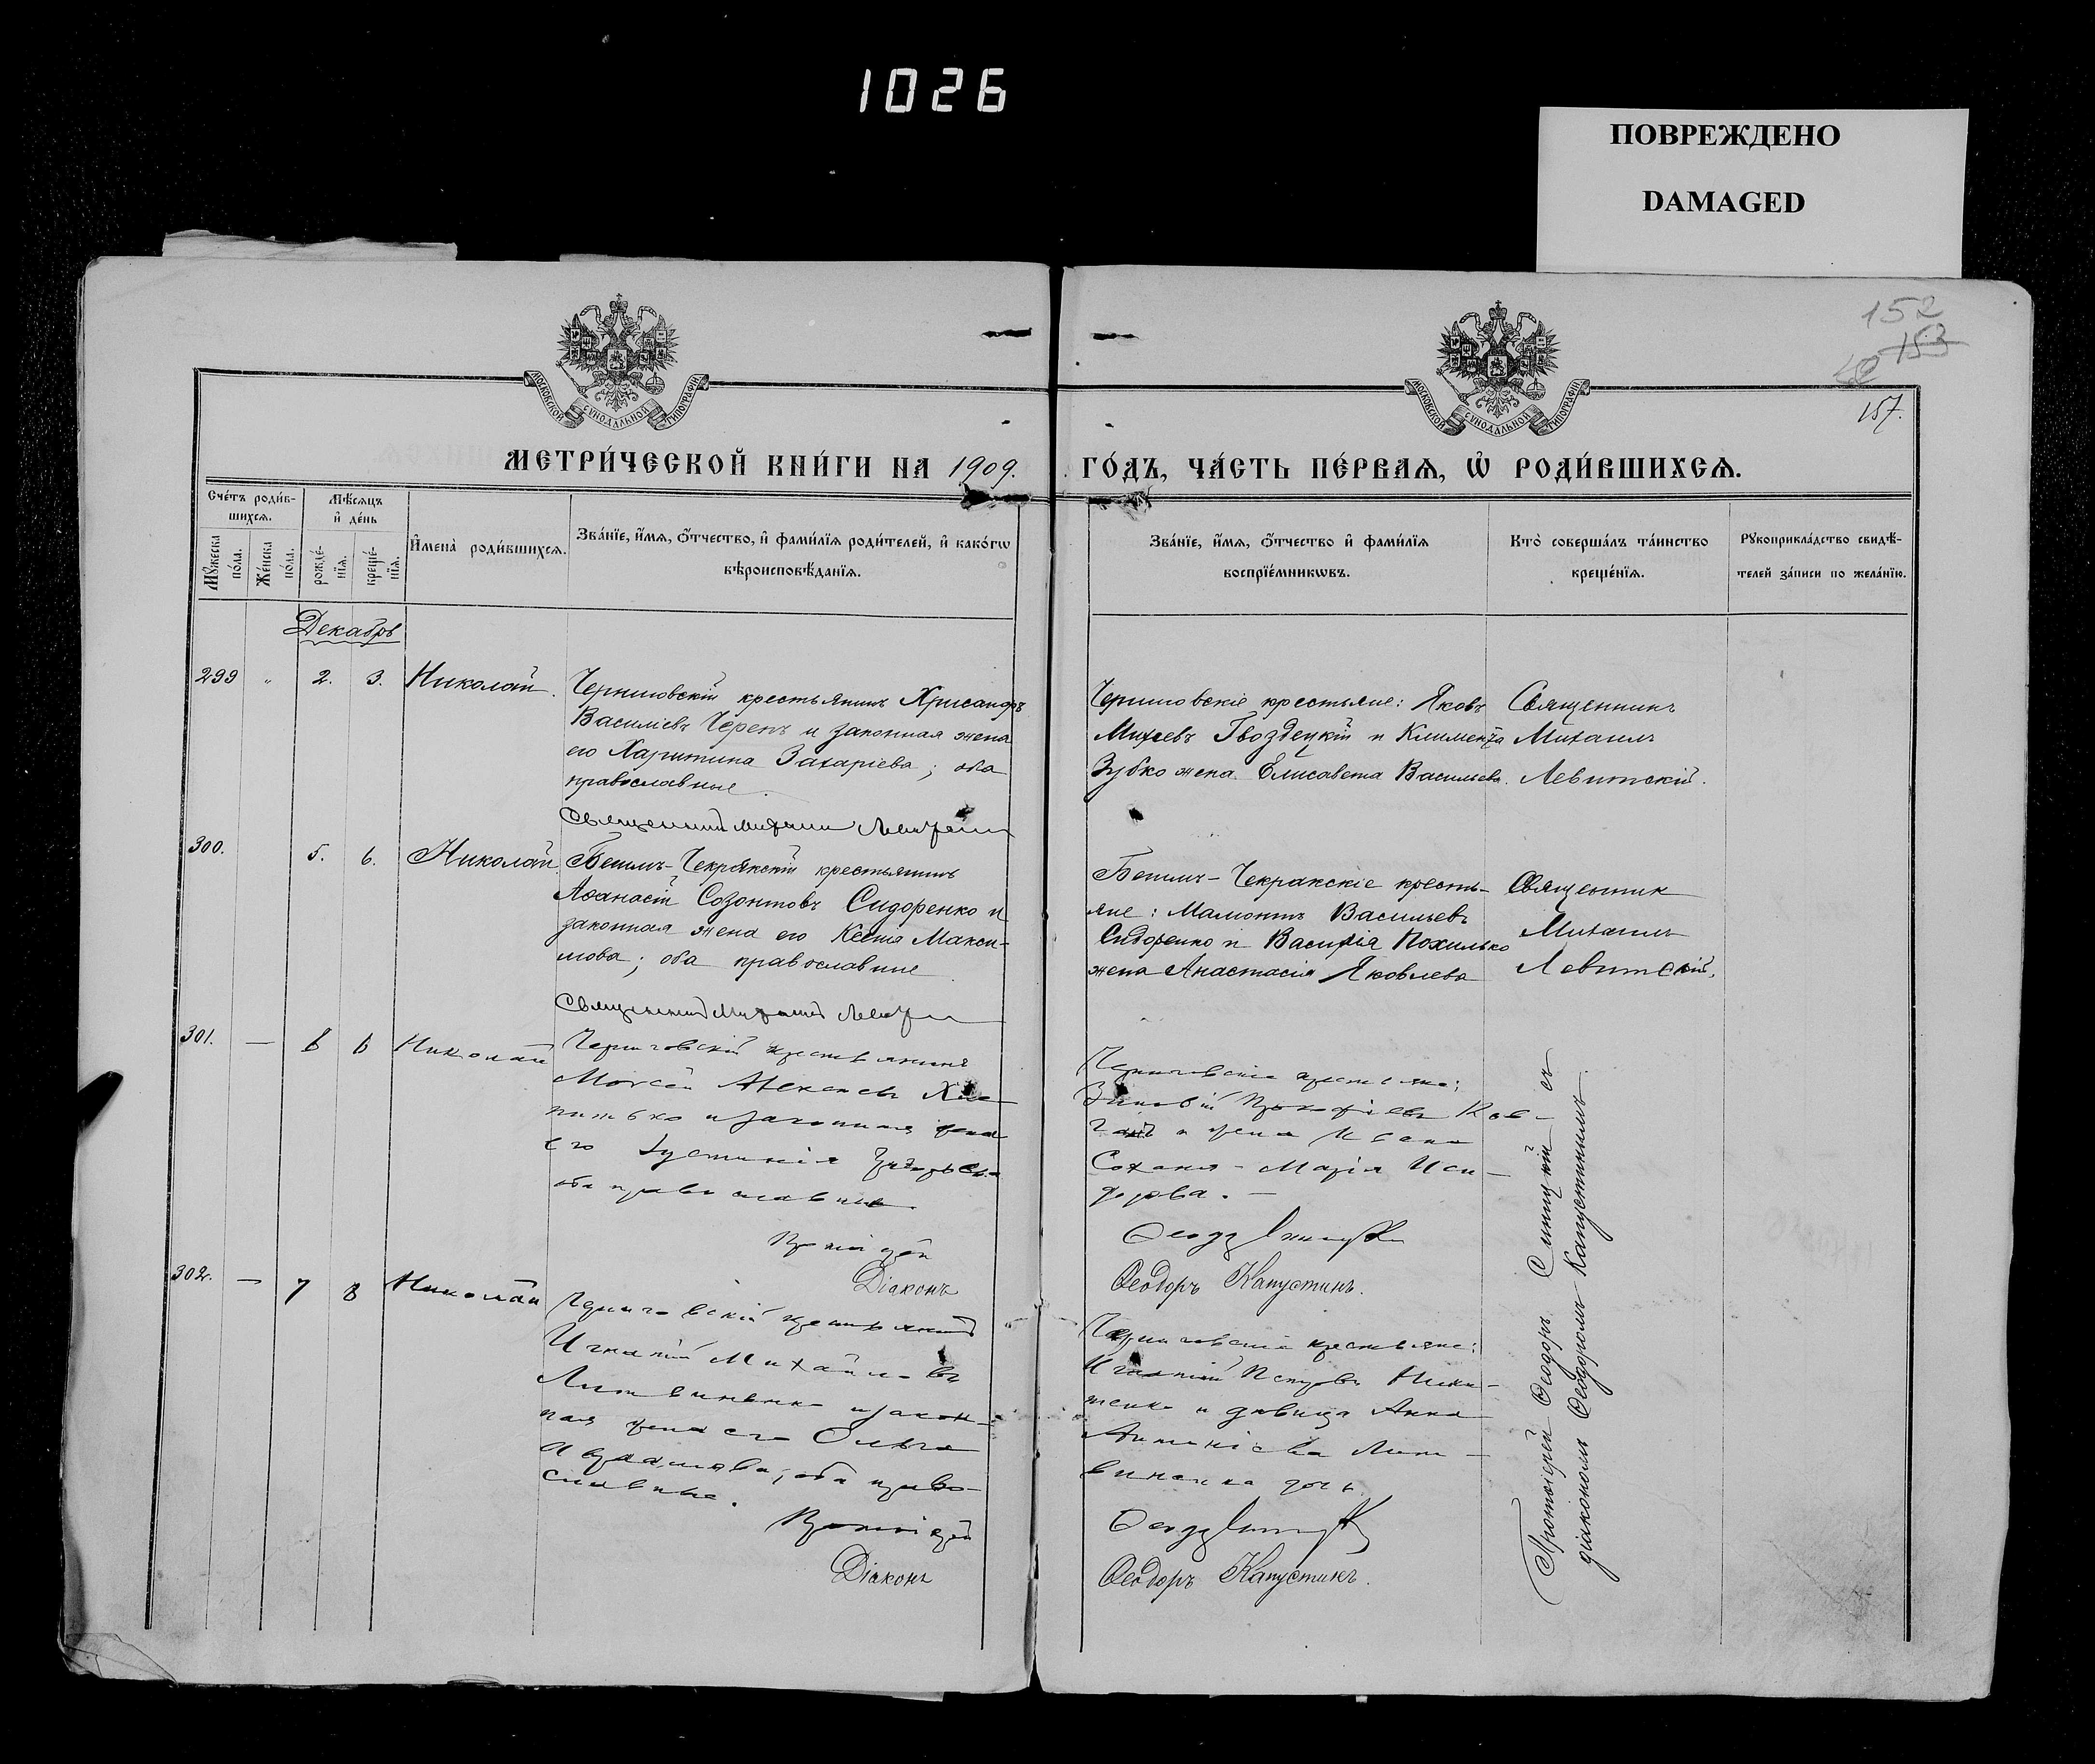 1026
ПОВРЕЖДЕНО
DAMAGED
152
153
157.
МОСКОВСКОЙ СУНОДАЛЬНОЙ ТИПОГРАФІИ
МОСКОВСКОЙ СУНОДАЛЬНОЙ ТИПОГРАФІИ
МЕТРИ́ЧЕСКОЙ КНИ́ГИ НА 1909.
ГО́ДЪ, ЧА́СТЬ ПЕ́РВАѦ, Ѡ҆ РОДИ́ВШИХСѦ.
Сче́тъ роди́в-
шихсѧ.
Мꙋ́жеска по́ла.
Же́нска по́ла.
Мѣ́сѧцъ
и҆ де́нь
рожде́-
нїѧ.
креще́-
нїѧ.
И҆мена̀ роди́вшихсѧ.
Зва́нїе, и҆́мѧ, ѻ҆́тчество, и҆ фами́лїѧ роди́телей, и҆ како́гѡ
вѣроисповѣ́данїѧ.
Зва́нїе, и҆́мѧ, ѻ҆́тчество и҆ фами́лїѧ
воспрїе́мникѡвъ.
Кто̀ соверша́лъ та́инство
креще́нїѧ.
Рꙋкоприкла́дство свидѣ́-
телей за́писи по жела́нїю.
Декабрь
299 " 2. 3. Николай.
Черниговскій крестьянинъ Хрисанфъ
Василіевъ Черепъ и законная жена
его Харитина Захаріева; оба
православные.
Священникъ Михаилъ Левитскій
Черниговскіе крестьяне: Яковъ
Михеевъ Гвоздецкій и Климента
Зубко жена Елисавета Васильева.
Священникъ
Михаилъ
Левитскій.
300. 5. 6. Николай
Бешпъ-Чекракскій крестьянинъ
Аѳанасій Созонтовъ Сидоренко и
законная жена его Ксенія Макси-
мова; оба православные.
Священникъ Михаилъ Левитскій
Чекракскіе кресть-
яне: Мамонтъ Васильевъ
Сидоренко и Василія Похилько
жена Анастасія Яковлева
Священник
Михаилъ
Левитскій.
301. — 6 6 Николай
Черниговскій крестьянинъ
Моѵсей Алексѣевъ
и законная жена
его Іустинія
оба православные.
Протоіерей
Діаконъ
Черниговскіе крестьяне:
Зиновій Прокофіевъ
и жена Ивана
Сохана - Марія Иси-
дорова. —
Ѳеодоръ Синицкій
Ѳеодоръ Капустинъ.
302. — 7 8 Николай
Черниговскій крестьянинъ
Игнатій Михайловъ
Литвиненко и закон-
ная жена его Ольга
оба право-
славные.
Протоіерей
Діаконъ
Черниговскіе крестьяне:
Игнатій Петровъ Ники-
тенко и дѣвица Анна
Лит-
виненка дочь.
Ѳеодоръ Синицкій
Ѳеодоръ Капустинъ.
Протоіерей Ѳеодоръ Синицкій съ
діакономъ Ѳеодоромъ Капустинымъ.